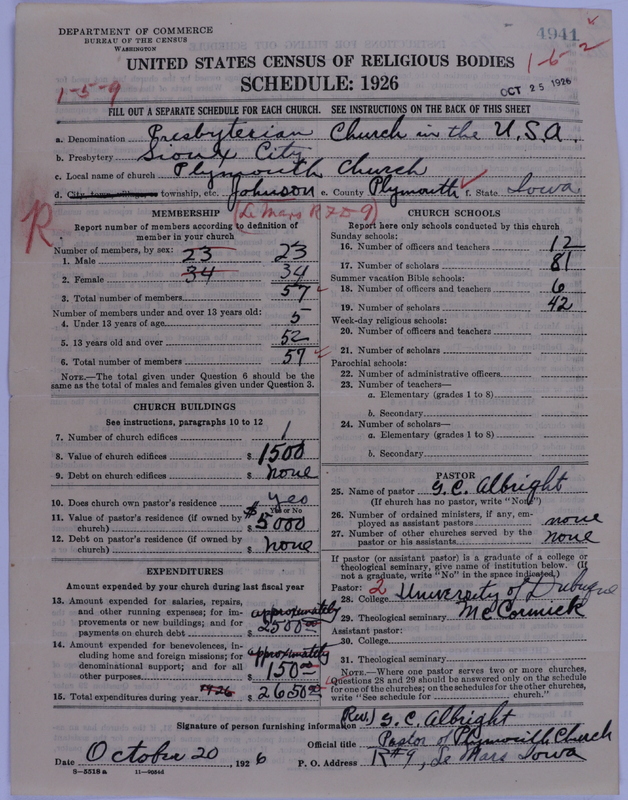 DEPARTMENT OF COMMERCE
BUREAU OF THE CENSUS
WASHINGTON
4941
1-6-2
UNITED STATES CENSUS OF RELIGIOUS BODIES
SCHEDULE: 1926
OCT 25 1926
1-5-9
FILL OUT A SEPARATE SCHEDULE FOR EACH CHURCH. SEE INSTRUCTIONS ON THE BACK OF THIS SHEET
a. Denomination Presbyterian Church in the U.S.A.
b. Presbytery Sioux City
c. Local name of church Plymouth Church
d. City, town, village, or township, etc. Johnson e. County Plymouth f. State Iowa
R
(Le Mars RFD-9)
MEMBERSHIP
Report number of members according to definition of member in your church
Number of members, by sex:
1. Male 23 23
2. Female 34 34
3. Total number of members 57
Number of members under and over 13 years old:
4. Under 13 years of age 5
5. 13 years old and over 52
6. Total number of members 57
NOTE.—The total given under Question 6 should be the same as the total of males and females given under Question 3.
CHURCH BUILDINGS
See instructions, paragraphs 10 to 12
7. Number of church edifices 1
8. Value of church edifices $ 1500
9. Debt on church edifices $ none
10. Does church own pastor's residence yes
Yes or No
11. Value of pastor's residence (if owned by church) $ 5000
12. Debt on pastor's residence (if owned by church) $ none
EXPENDITURES
Amount expended by your church during last fiscal year
13. Amount expended for salaries, repairs, and other running expenses; for improvements or new buildings; and for payments on church debt approximately $ 2500.00
14. Amount expended for benevolences, including home and foreign missions; for denominational support; and for all other purposes approximately $ 150.00
15. Total expenditures during year 1926 $ 2650.00
CHURCH SCHOOLS
Report here only schools conducted by this church
Sunday schools:
16. Number of officers and teachers 12
17. Number of scholars 81
Summer vacation Bible schools:
18. Number of officers and teachers 6
19. Number of scholars 42
Week-day religious schools:
20. Number of officers and teachers
21. Number of scholars
Parochial schools:
22. Number of administrative officers
23. Number of teachers—
a. Elementary (grades 1 to 8)
b. Secondary
24. Number of scholars—
a. Elementary (grades 1 to 8)
b. Secondary
PASTOR
25. Name of pastor G. C. Albright
(If church has no pastor, write "None")
26. Number of ordained ministers, if any, employed as assistant pastors none
27. Number of other churches served by the pastor or his assistants none
If pastor (or assistant pastor) is a graduate of a college or theological seminary, give name of institution below. (If not a graduate, write "No" in the space indicated.)
Pastor: 2
28. College University of Dubuque
29. Theological seminary McCormick
Assistant pastor:
30. College
31. Theological seminary
NOTE.—Where one pastor serves two or more churches, Questions 28 and 29 should be answered only on the schedule for one of the churches; on the schedules for the other churches, write "See schedule for church."
Signature of person furnishing information (Rev.) G. C. Albright
Official title Pastor of Plymouth Church
Date October 20, 1926 P. O. Address R#9, Le Mars Iowa